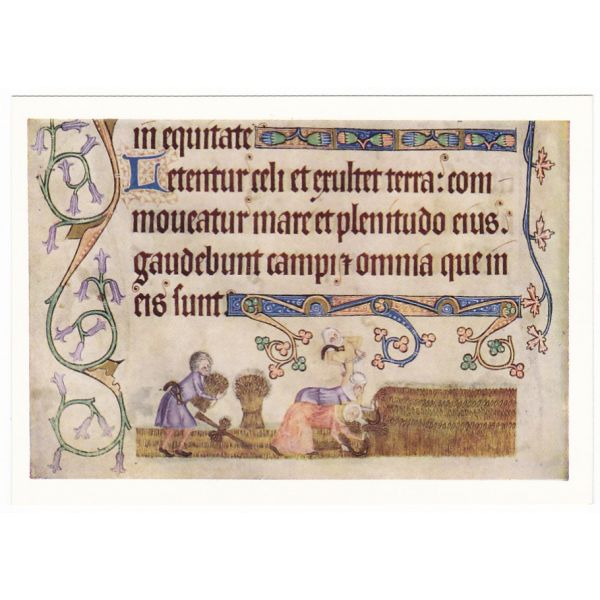 in equitate
Letentur celi et exultet terra: com
moueatur mare et plenitudo eius.
gaudebunt campi ⁊ omnia que in
eis sunt.